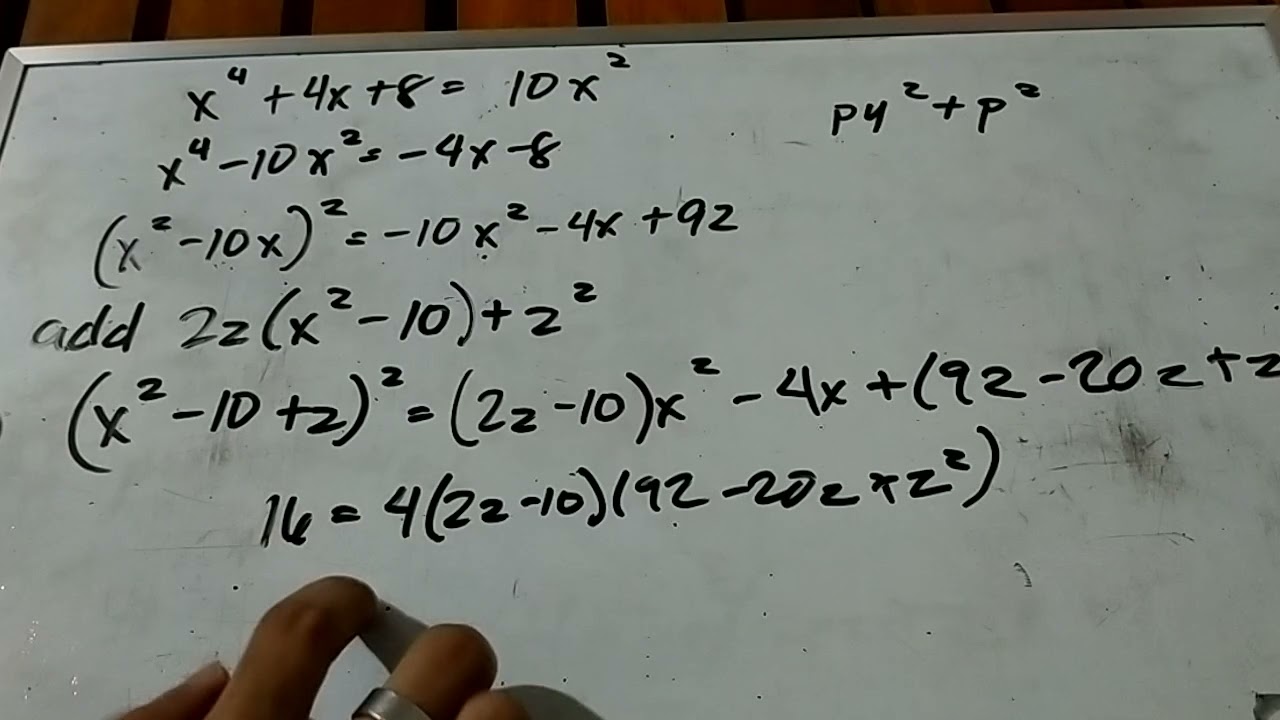 x⁴ + 4x + 8 = 10x²
py² + p²
x⁴ - 10x² = -4x - 8
(x² - 10x)² = -10x² - 4x + 92
add 2z(x² - 10) + z²
(x² - 10 + z)² = (2z - 10)x² - 4x + (92 - 20z + z
16 = 4(2z - 10)(92 - 20z + z²)